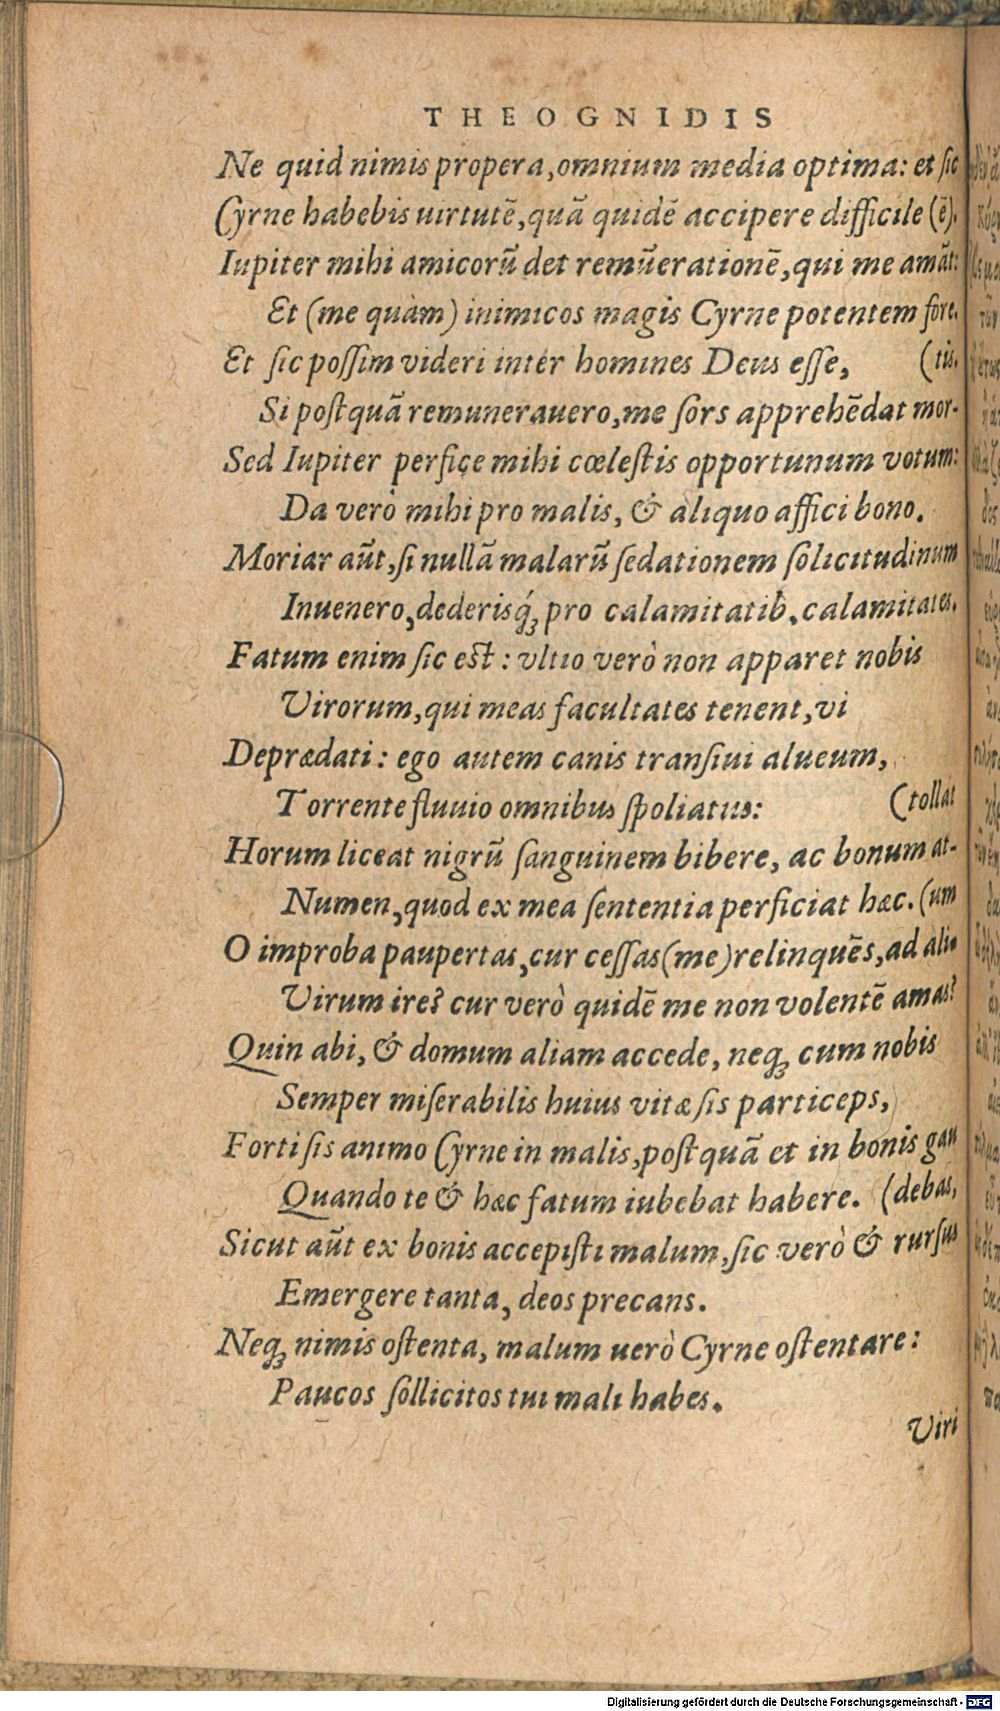 THEOGNIDIS
Ne quid nimis propera, omnium media optima: et sic
Cyrne habebis uirtutē, quā quidē accipere difficile (ē).
Iupiter mihi amicorū det remūerationē, qui me amāt:
Et (me quàm) inimicos magis Cyrne potentem fore.
Et sic possim videri inter homines Deus esse, (tis.
Si postquā remunerauero, me sors apprehēdat mor-
Sed Iupiter perfice mihi cœlestis opportunum votum:
Da verò mihi pro malis, & aliquo affici bono.
Moriar aūt, si nullā malarū sedationem solicitudinum
Inuenero, dederisq́ꝫ pro calamitatib. calamitates.
Fatum enim sic est: vltio verò non apparet nobis
Virorum, qui meas facultates tenent, vi
Deprædati: ego autem canis transiui alueum,
Torrente fluuio omnibus spoliatus: (tollat
Horum liceat nigrū sanguinem bibere, ac bonum at-
Numen, quod ex mea sententia perficiat hæc. (um
O improba paupertas, cur cessas (me) relinquēs, ad ali-
Virum ire? cur verò quidē me non volentē amas?
Quin abi, & domum aliam accede, neqꝫ cum nobis
Semper miserabilis huius vitæ sis particeps,
Forti sis animo Cyrne in malis, postquā et in bonis gau
Quando te & hæc fatum iubebat habere. (debas,
Sicut aūt ex bonis accepisti malum, sic verò & rursus
Emergere tanta, deos precans.
Neqꝫ nimis ostenta, malum uerò Cyrne ostentare:
Paucos sollicitos tui mali habes.
Viri
Digitalisierung gefördert durch die Deutsche Forschungsgemeinschaft - DFG